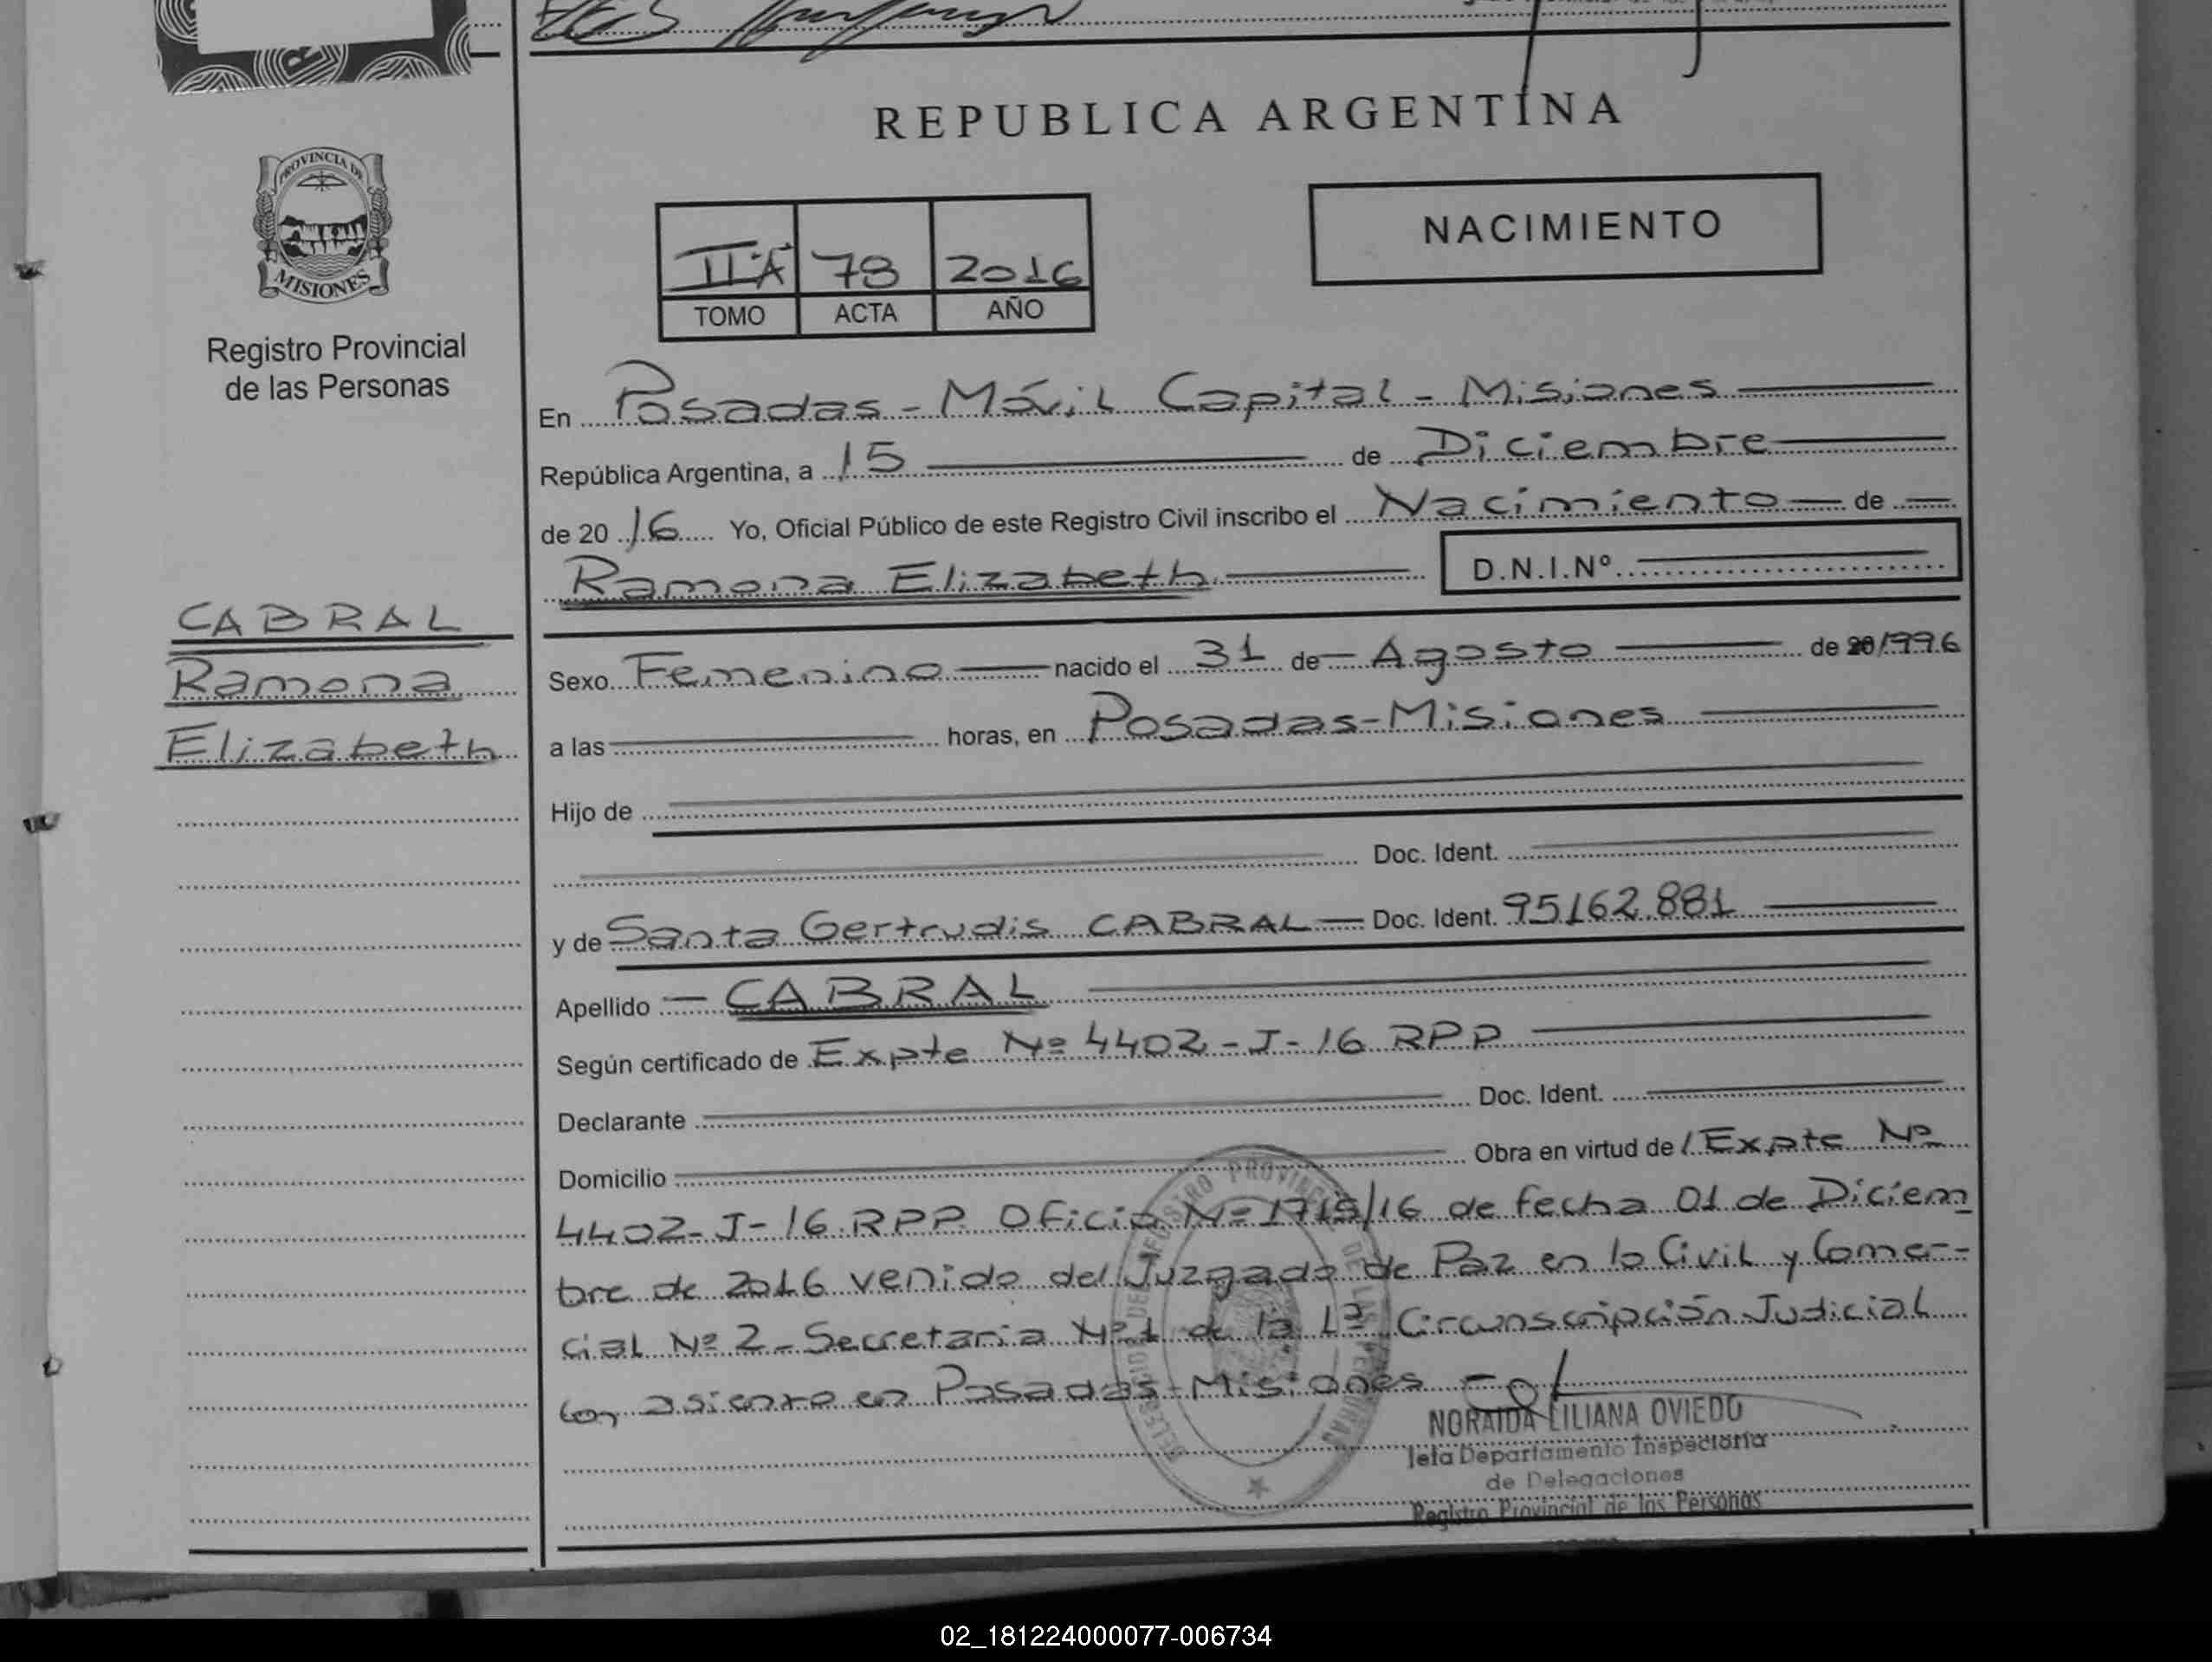 REPUBLICA ARGENTINA
PROVINCIA DE
MISIONES
Registro Provincial
de las Personas
NACIMIENTO
IIA 78 2016
TOMO ACTA AÑO
En Posadas - Móvil Capital - Misiones
República Argentina, a 15 de Diciembre
de 20 16 Yo, Oficial Público de este Registro Civil inscribo el Nacimiento de
Ramona Elizabeth D.N.I.Nº
CABRAL
Ramona
Elizabeth
Sexo Femenino nacido el 31 de Agosto de 1996
a las horas, en Posadas-Misiones
Hijo de
Doc. Ident.
y de Santa Gertrudis CABRAL Doc. Ident. 95162.881
Apellido CABRAL
Según certificado de Expte Nº 4402-J-16 RPP
Declarante Doc. Ident.
Domicilio Obra en virtud de / Expte Nº
4402-J-16 RPP Oficio Nº /16 de fecha 01 de Diciem
bre de 2016 venido del Juzgado de Paz en lo Civil y Comer-
cial Nº 2 - Secretaria Nº1 de la 1ª Circunscripción Judicial
con asiento en Posadas-Misiones
NORAIDA LILIANA OVIEDO
Jefa Departamento Inspectoría
de Delegaciones
Registro Provincial de las Personas
02_181224000077-006734